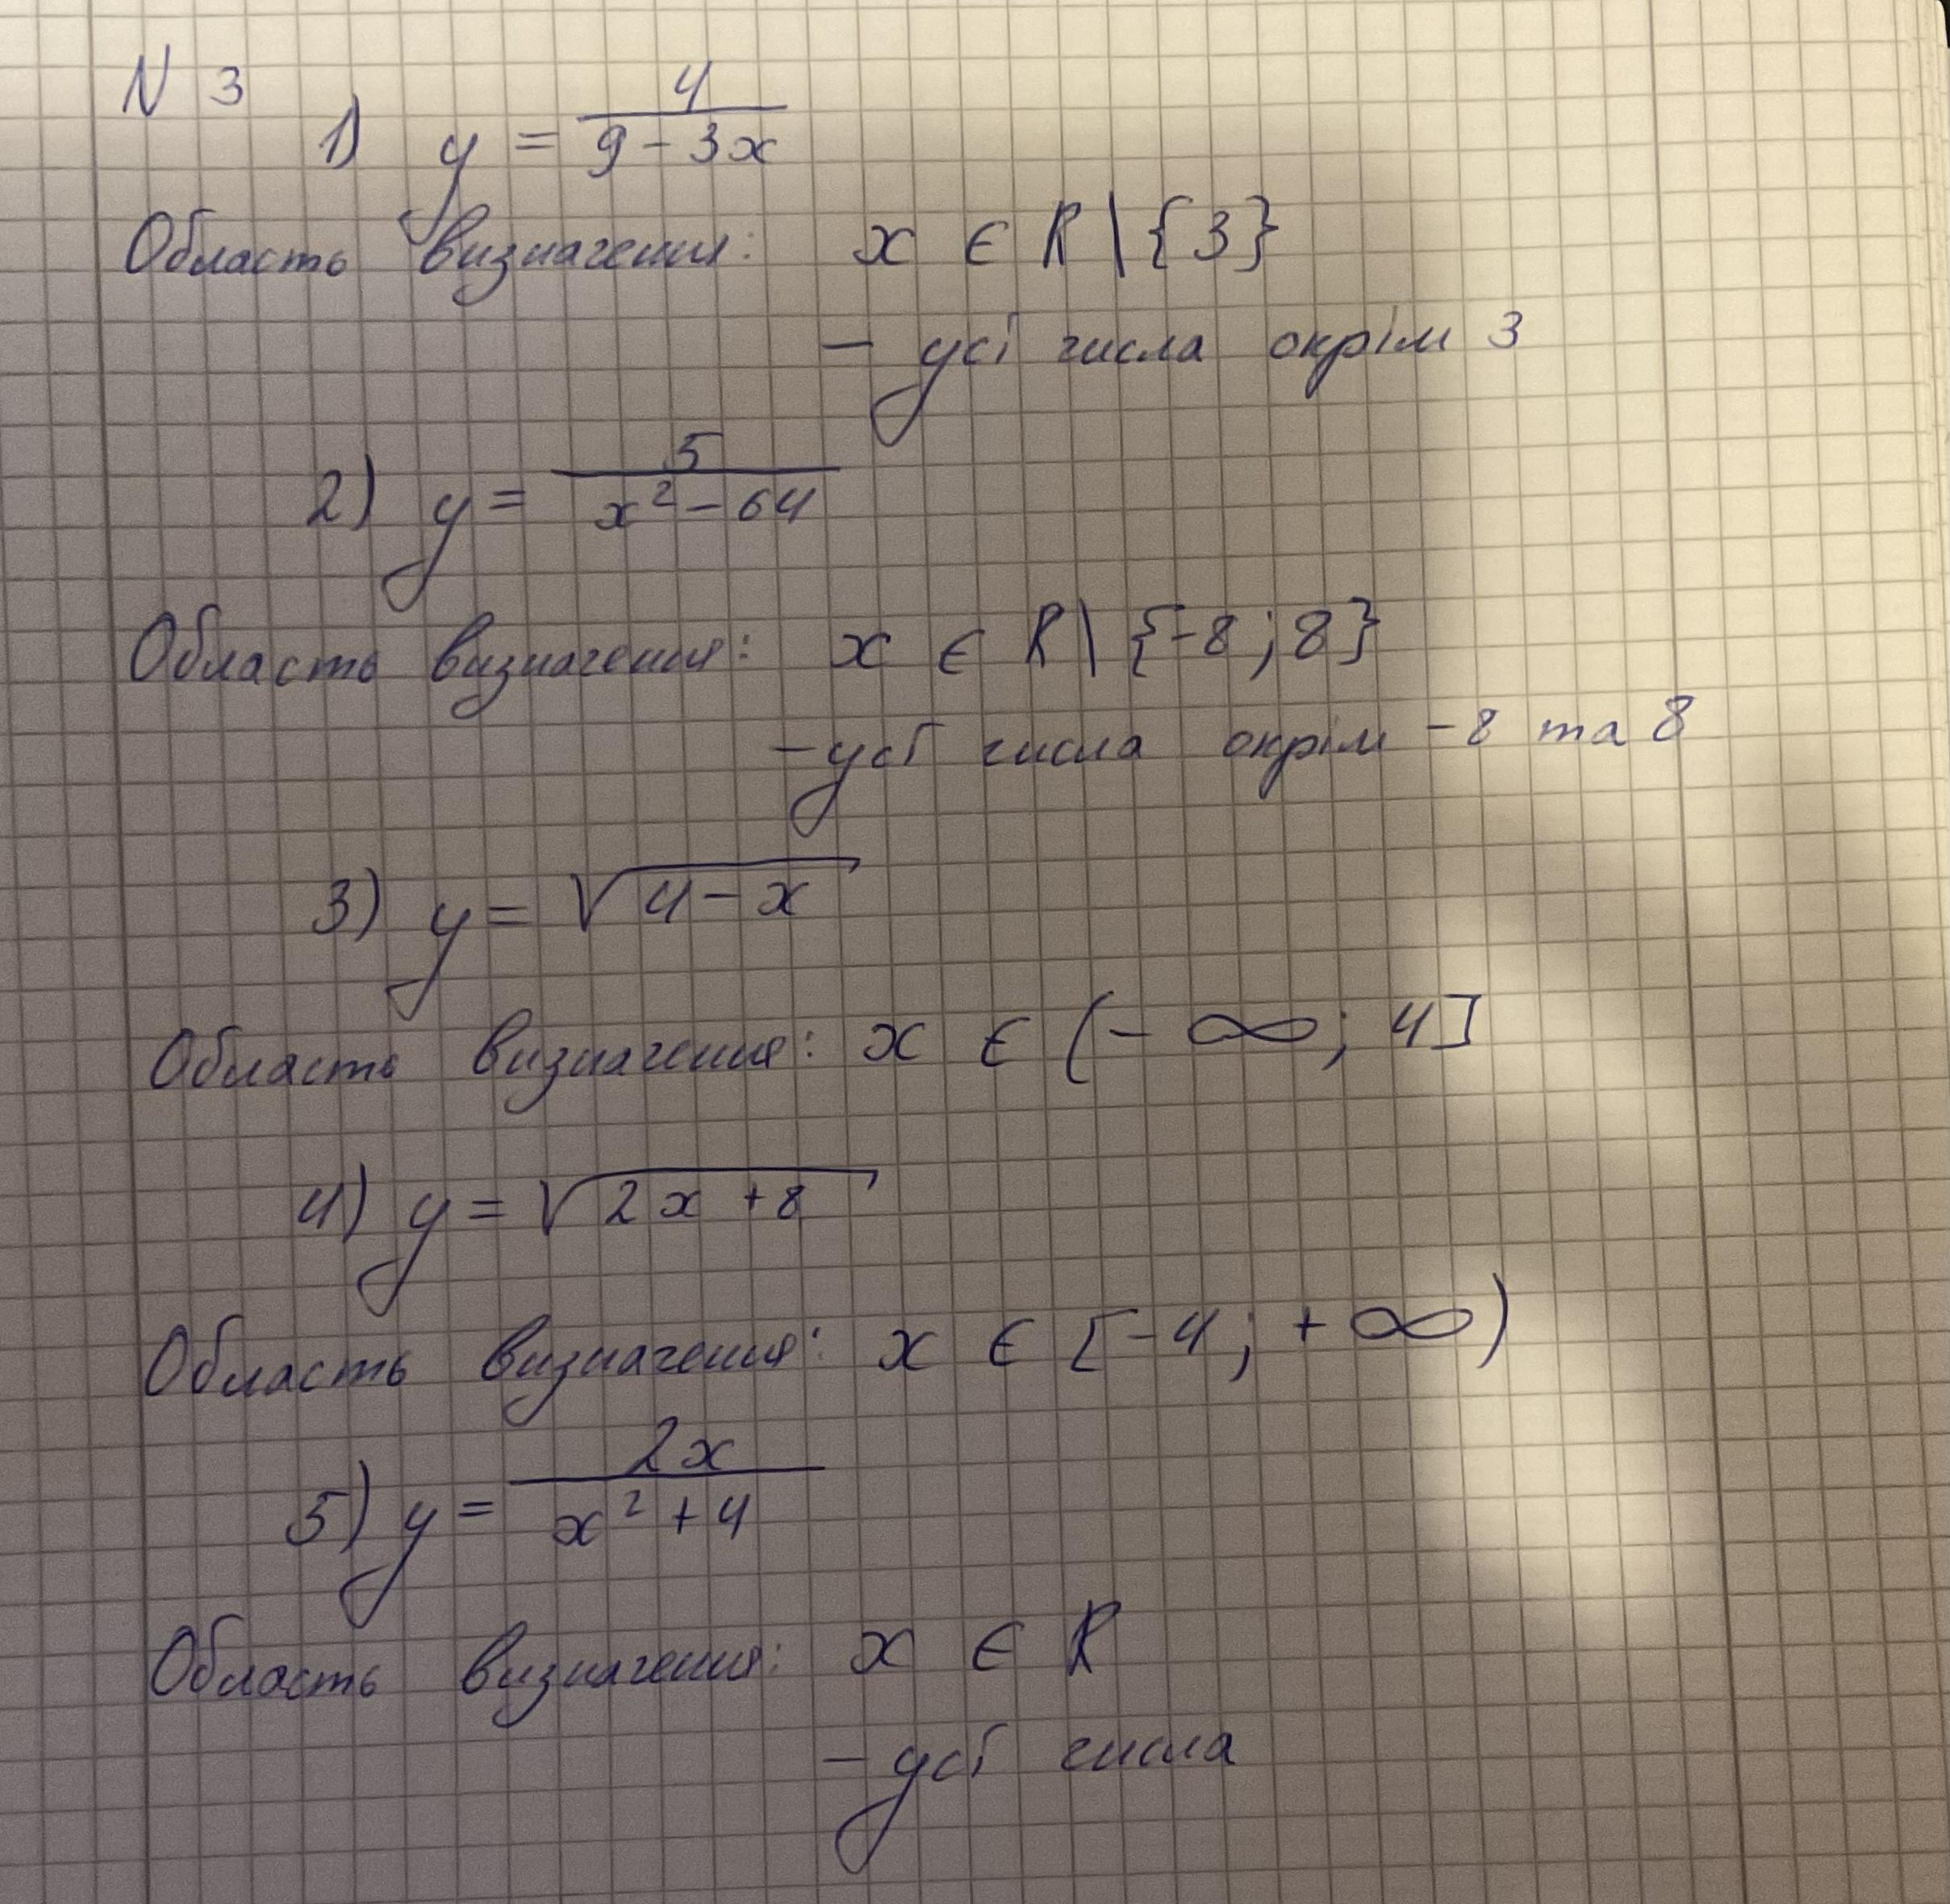 N 3
1) y = 4/(9 - 3x)
Область визначення: x ∈ R \ {3}
- усі числа окрім 3
2) y = 5/(x² - 64)
Область визначення: x ∈ R \ {-8; 8}
- усі числа окрім -8 та 8
3) y = √(4 - x)
Область визначення: x ∈ (-∞; 4]
4) y = √(2x + 8)
Область визначення: x ∈ [-4; +∞)
5) y = 2x/(x² + 4)
Область визначення: x ∈ R
- усі числа